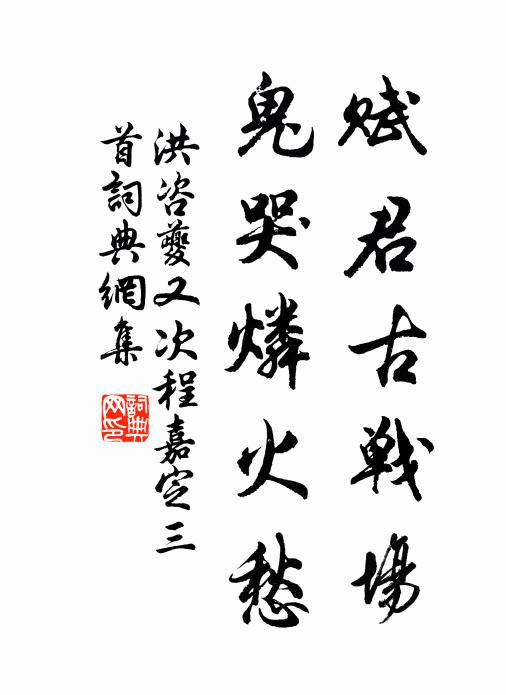 赋君古戦場
鬼哭燐火愁
洪咨夔又次程嘉定三
首詞典網集
詞典网印